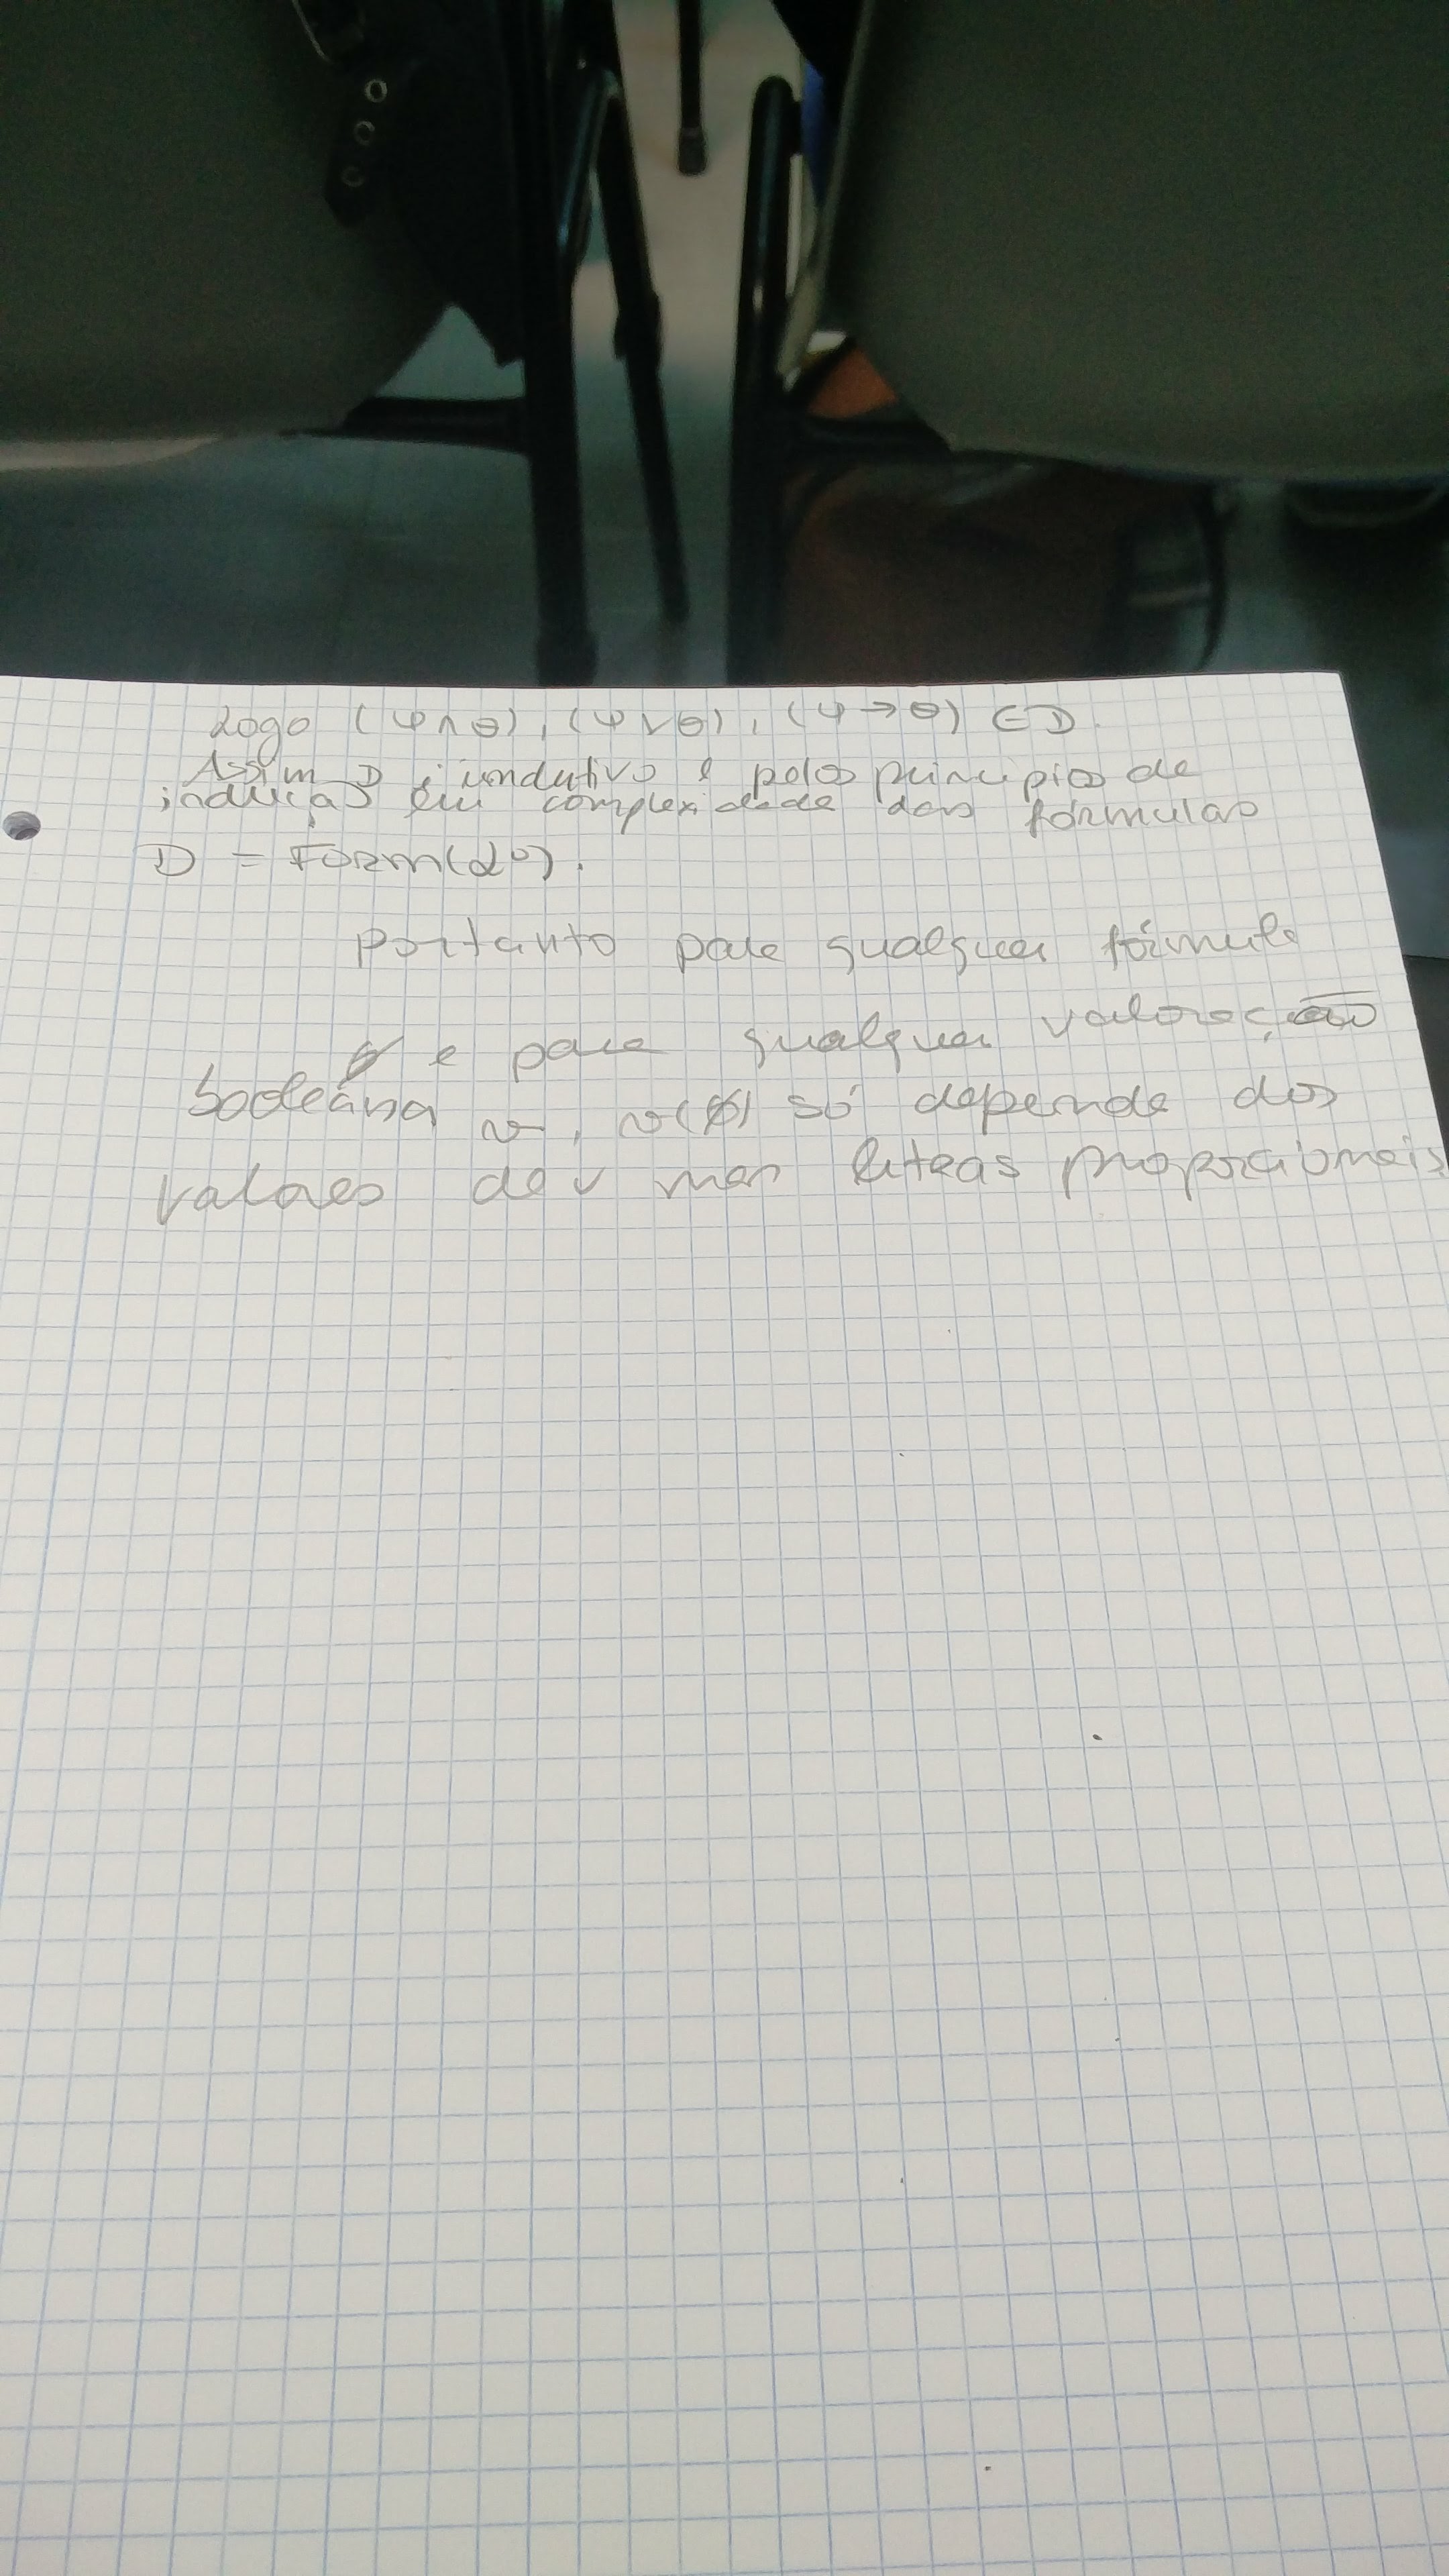 Logo (ψ∧θ), (ψ∨θ), (ψ→θ) ∈ D.
Assim D é indutivo e pelos principios de
indução em complexidade das fórmulas
D = Form(L⁰).
Portanto para qualquer fórmula
φ e para qualquer valoração
booleana v, v(φ) só depende dos
valores de v nas letras proporcionais